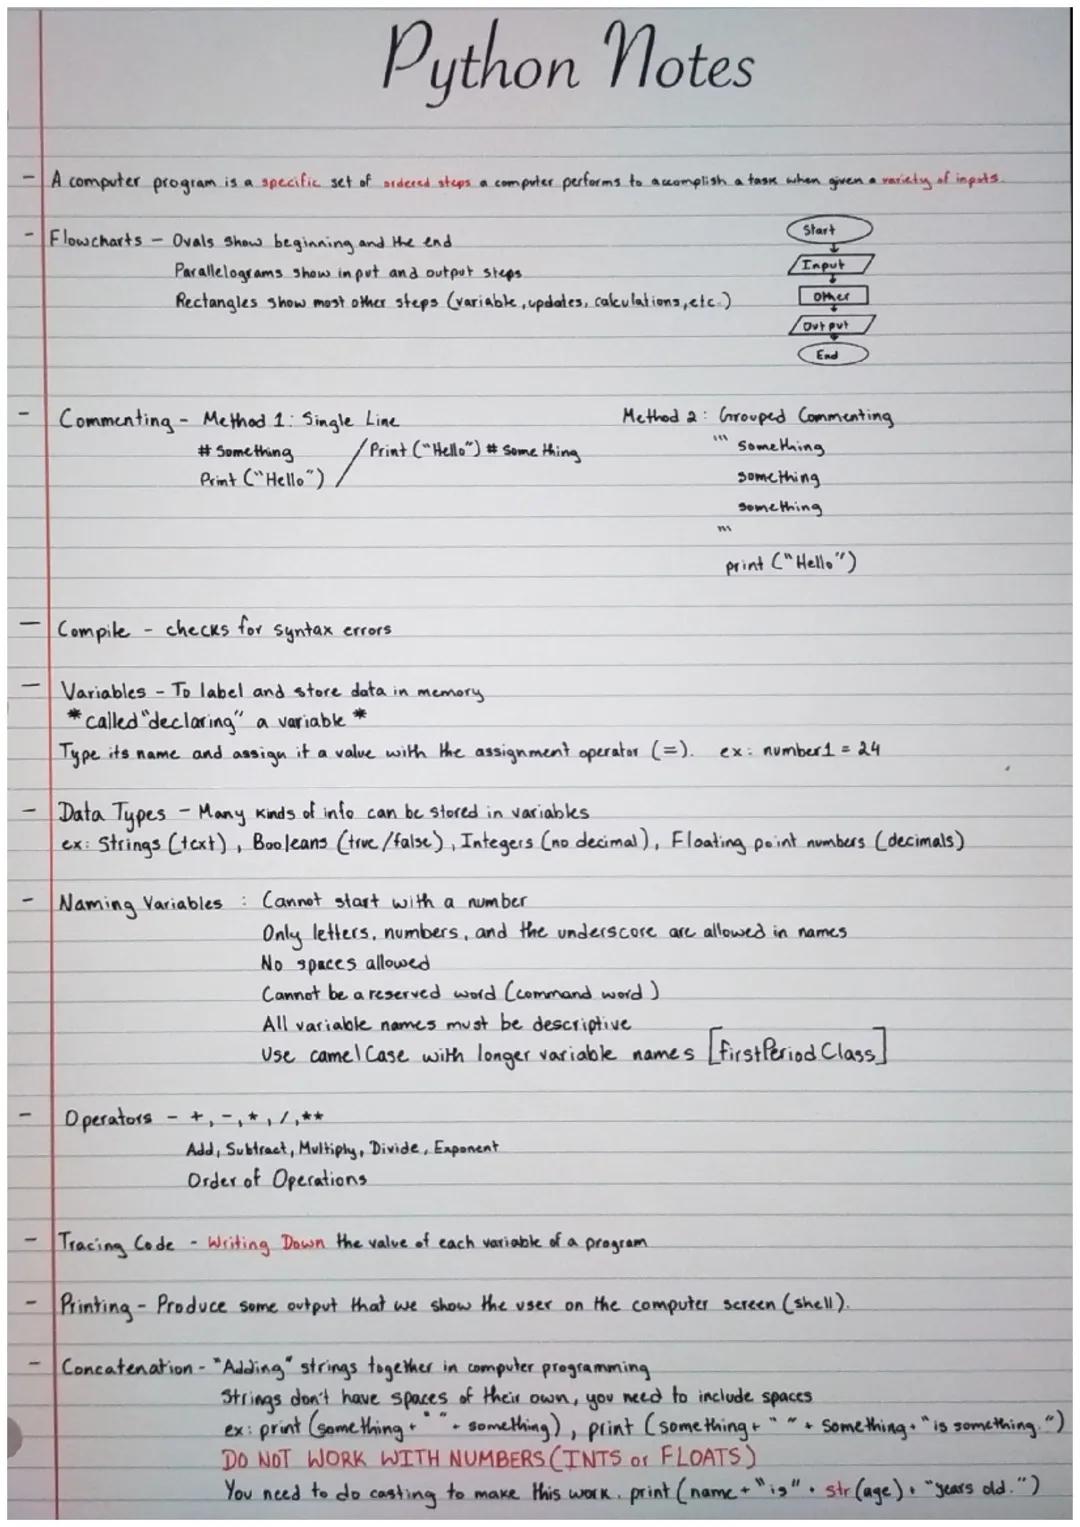 Python Notes
- A computer program is a specific set of ordered steps a computer performs to accomplish a task when given a variety of inputs.
- Flowcharts - Ovals show beginning and the end
Parallelograms show input and output steps
Rectangles show most other steps (variable, updates, calculations, etc.)
Start
Input
Other
Output
End
- Commenting - Method 1: Single Line
# Something / Print ("Hello") # Something
Print ("Hello")
Method 2: Grouped Commenting
''' Something
something
something
'''
print ("Hello")
- Compile - checks for syntax errors
- Variables - To label and store data in memory
*called "declaring" a variable *
Type its name and assign it a value with the assignment operator (=). ex: number1 = 24
- Data Types - Many kinds of info can be stored in variables
ex: Strings (text), Booleans (true/false), Integers (no decimal), Floating point numbers (decimals)
- Naming Variables : Cannot start with a number
Only letters, numbers, and the underscore are allowed in names
No spaces allowed
Cannot be a reserved word (command word)
All variable names must be descriptive
Use camelCase with longer variable names [firstPeriodClass]
- Operators - +, -, *, /, **
Add, Subtract, Multiply, Divide, Exponent
Order of Operations
- Tracing Code - Writing Down the value of each variable of a program
- Printing - Produce some output that we show the user on the computer screen (shell).
- Concatenation - "Adding" strings together in computer programming
Strings don't have spaces of their own, you need to include spaces
ex: print (something + " " + something), print (something + " " + something + "is something.")
DO NOT WORK WITH NUMBERS (INTS or FLOATS)
You need to do casting to make this work. print (name + "is" + str(age) + "years old.")